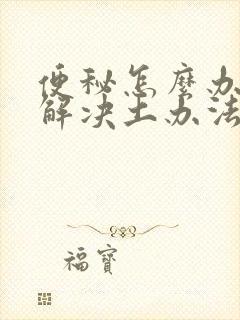 便秘怎麼办
解决土办法
福寶